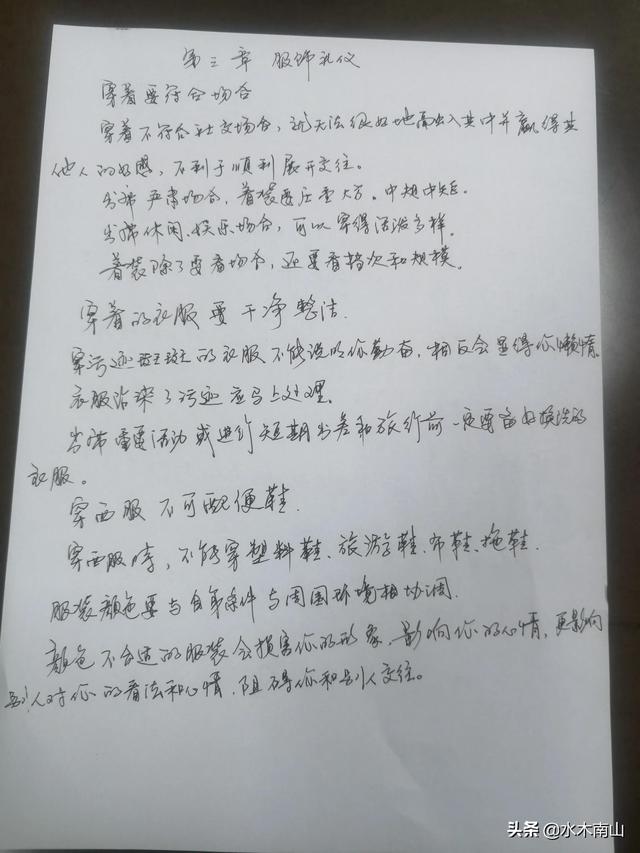 第三章 服饰礼仪
穿着要符合场合
穿着不符合社交场合，就无法很好地融入其中并赢得其
他人的好感，不利于顺利展开交往。
出席严肃场合，着装要庄重大方。中规中矩。
出席休闲、娱乐场合，可以穿得活泼多样。
着装除了要看场合，还要看档次和规模。
穿着的衣服要干净整洁.
穿污迹斑斑的衣服不能说明你勤奋，相反会显得你懒惰。
衣服沾染了污迹应马上处理。
出席重要活动或进行短期出差和旅行前一定要备好换洗的
衣服。
穿西服不可配便鞋.
穿西服时，不能穿塑料鞋、旅游鞋、布鞋、拖鞋.
服装颜色要与自身条件与周围环境相协调.
颜色不合适的服装会损害你的形象，影响你的心情，更影响
别人对你的看法和心情，阻碍你和别人交往。
头条 @水木南山